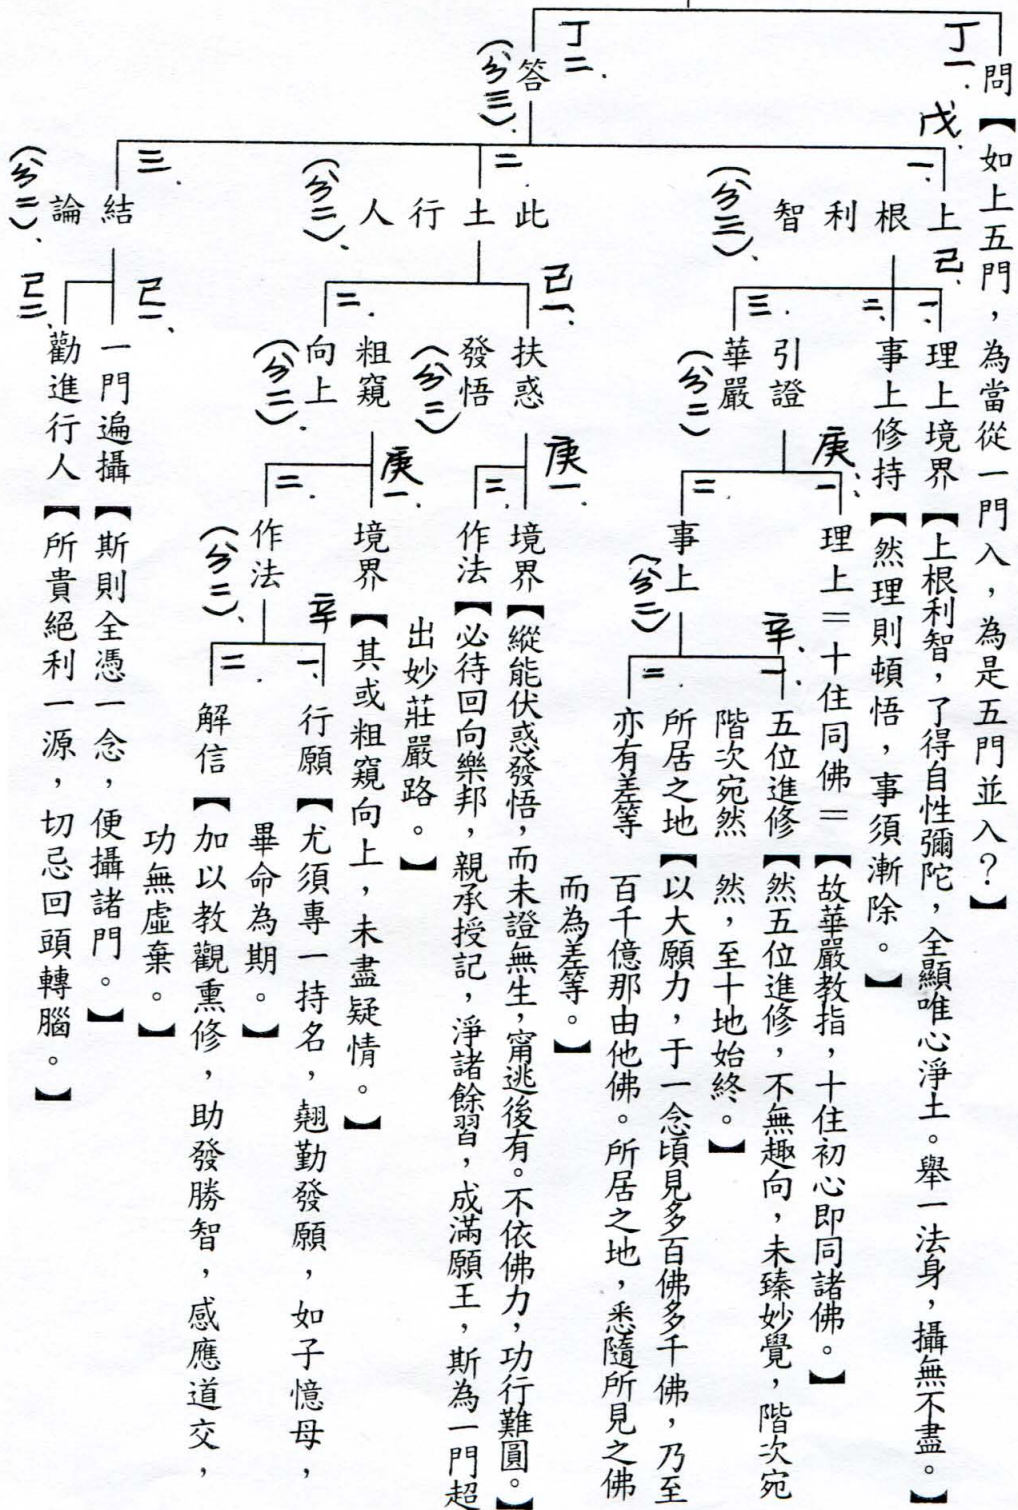 丁一、問【如上五門，為當從一門入，為是五門並入？】
丁二、答（分三）、
戊一、上根利智（分三）、
己一、理上境界【上根利智，了得自性彌陀，全顯唯心淨土。舉一法身，攝無不盡。】
二、事上修持【然理則頓悟，事須漸除。】
三、引證華嚴（分二）
庚一、理上＝十住同佛＝【故華嚴教指，十住初心即同諸佛。】
二、事上（分二）
辛一、五位進修階次宛然【然五位進修，不無趣向，未臻妙覺，階次宛
然，至十地始終。】
二、所居之地亦有差等【以大願力，于一念頃見多百佛多千佛，乃至
百千億那由他佛。所居之地，悉隨所見之佛
而為差等。】
二、此土行人（分二）、
己一、扶惑發悟（分二）
庚一、境界【縱能伏惑發悟，而未證無生，甯逃後有。不依佛力，功行難圓。】
二、作法【必待回向樂邦，親承授記，淨諸餘習，成滿願王，斯為一門超
出妙莊嚴路。】
二、粗窺向上（分二）、
庚一、境界【其或粗窺向上，未盡疑情。】
二、作法（分二）、
辛一、行願【尤須專一持名，翹勤發願，如子憶母，
畢命為期。】
二、解信【加以教觀熏修，助發勝智，感應道交，
功無虛棄。】
三、結論（分二）、
己一、一門遍攝【斯則全憑一念，便攝諸門。】
己二、勸進行人【所貴絕利一源，切忌回頭轉腦。】